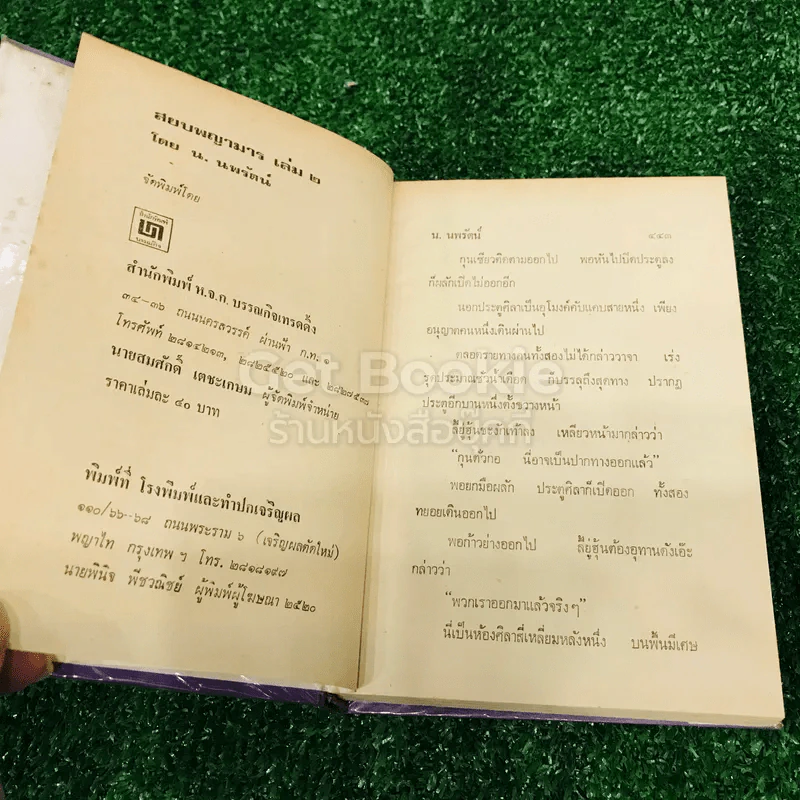 สยบพญามาร เล่ม ๒
โดย น. นพรัตน์
จัดพิมพ์โดย
สำนักพิมพ์
บรรณกิจ
สำนักพิมพ์ ห.จ.ก. บรรณกิจเทรดดิ้ง
๓๔-๓๖ ถนนนครสวรรค์ ผ่านฟ้า ก.ท. ๑
โทรศัพท์ ๒๘๑๔๒๑๓, ๒๘๒๕๕๒๐ และ ๒๘๒๗๕๓๗
นายสมศักดิ์ เตชะเกษม ผู้จัดพิมพ์จำหน่าย
ราคาเล่มละ ๔๐ บาท
พิมพ์ที่ โรงพิมพ์และทำปกเจริญผล
๑๑๐/๖๖-๖๘ ถนนพระราม ๖ (เจริญผลตัดใหม่)
พญาไท กรุงเทพ ฯ โทร. ๒๘๑๘๑๙๗
นายพินิจ พีชวณิชย์ ผู้พิมพ์ผู้โฆษณา ๒๕๒๐
น. นพรัตน์ ๔๔๓
กุนเซียวคิดตามออกไป พอหันไปปิดประตูลง
ก็ผลักเปิดไม่ออกอีก
นอกประตูศิลาเป็นอุโมงค์คับแคบสายหนึ่ง เพียง
อนุญาตคนหนึ่งเดินผ่านไป
ตลอดรายทางคนทั้งสองไม่ได้กล่าววาจา เร่ง
รุดประมาณชั่วน้ำเดือด ก็บรรลุถึงสุดทาง ปรากฏ
ประตูอีกบานหนึ่งตั้งขวางหน้า
ลี้ยู่ฮุ้นชะงักเท้าลง เหลียวหน้ามากล่าวว่า
“กุนตั่วกอ นี่อาจเป็นปากทางออกแล้ว”
พอยกมือผลัก ประตูศิลาก็เปิดออก ทั้งสอง
ทยอยเดินออกไป
พอก้าวย่างออกไป ลี้ยู่ฮุ้นต้องอุทานดังเอ๊ะ
กล่าวว่า
“พวกเราออกมาแล้วจริง ๆ”
นี่เป็นห้องศิลาสี่เหลี่ยมหลังหนึ่ง บนพื้นมีเศษ
Get Bookie
ร้านหนังสือบุ๊คกี้